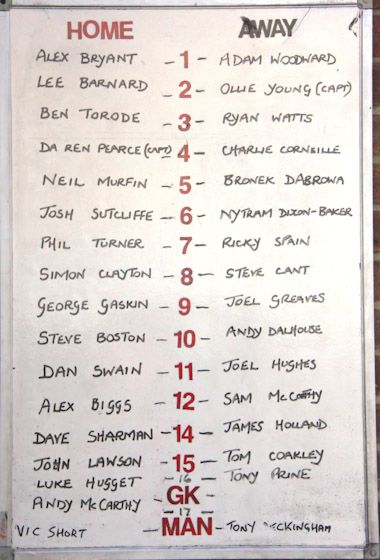 HOME AWAY
ALEX BRYANT - 1 - ADAM WOODWARD
LEE BARNARD - 2 - OLLIE YOUNG (CAPT)
BEN TORODE - 3 - RYAN WATTS
DA REN PEARCE (CAPT) - 4 - CHARLIE CORNEILLE
NEIL MURFIN - 5 - BRONEK DABROWA
JOSH SUTCLIFFE - 6 - NYTRAM DIXON-BAKER
PHIL TURNER - 7 - RICKY SPAIN
SIMON CLAYTON - 8 - STEVE CANT
GEORGE GASKIN - 9 - JOEL GREAVES
STEVE BOSTON - 10 - ANDY DALHOUSE
DAN SWAIN - 11 - JOEL HUGHES
ALEX BIGGS - 12 - SAM McCARTHY
DAVE SHARMAN - 14 - JAMES HOLLAND
JOHN LAWSON - 15 - TOM COAKLEY
LUKE HUGGET - 16 - TONY PRINE
ANDY McCARTHY - GK -
- 17 -
VIC SHORT - MAN - TONY